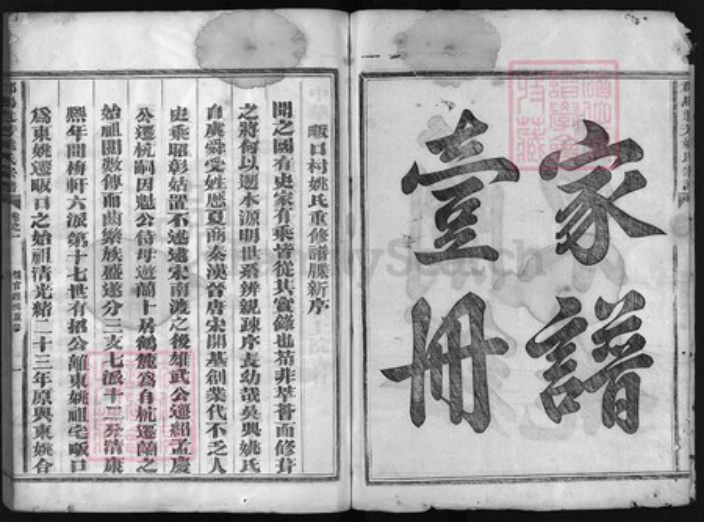 家譜
壹冊
畈口村姚氏重修譜牒新序
聞之國有史家有乘皆從其實錄也苟非葺而修葺
之將何以遡本源明世系辨親疎序長幼哉吳興姚氏
自虞舜受姓歷夏商秦漢晉唐宋開基創業代不乏人
史乘昭彰姑置不述逮宋南渡之後雄武公遷紹孟慶
公遷杭嗣因魁公侍母遊蘭卜居鶴麓爲自杭遷蘭之
始祖開數傳而蘭繁族盛遂分三支七派十二分清康
熙年間梅軒六派第十七世有招公離東姚祖宅畈口
爲東姚遷畈口之始祖清光緒二十三年原與東姚合